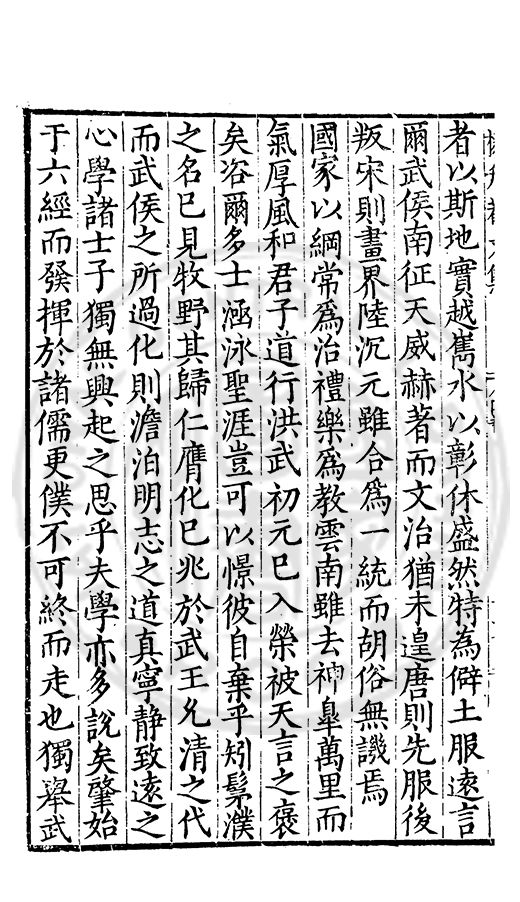 者以斯地實越巂水以彰休盛然特為僻土服遠言
爾武侯南征天威赫著而文治猶未遑唐則先服後
叛宋則畫界陸沉元雖合爲一統而胡俗無譏焉
國家以綱常爲治禮樂爲教雲南雖去神臯萬里而
氣厚風和君子道行洪武初元巳入榮被天言之褒
矣浴爾多士涵泳聖涯豈可以憬彼自棄乎矧髳濮
之名巳見牧野其歸仁膺化巳兆於武王允清之代
而武侯之所過化則澹泊明志之道真寧静致遠之
心學諸士子獨無興起之思乎夫學亦多說矣肇始
于六經而發揮於諸儒更僕不可終而走也獨舉武